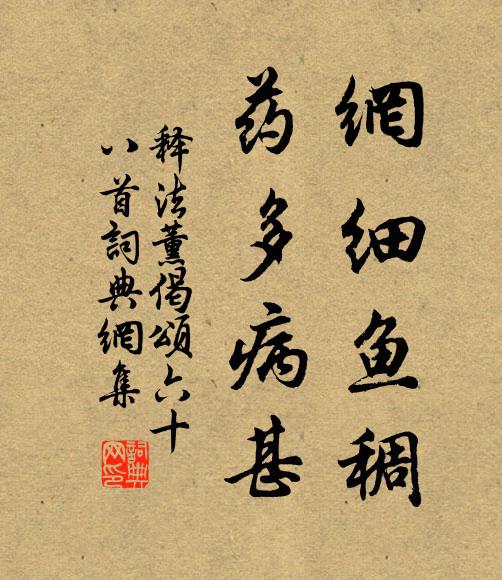 網细鱼稠
药多病甚
释法薰偈頌六十
八首詞典網集
詞典
网印